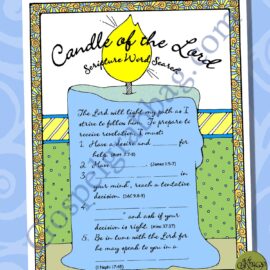 Candle of the Lord
Scripture Word Search
The Lord will light my path as I
strive to follow him. To prepare to
receive revelation, I must:
1. Have a desire and ______ for
help.
2. Have ______
3. ______ in
your mind, reach a tentative
decision.
4. ______
______ and ask if your
decision is right.
5. Be in tune with the Lord for
he may speak to you in a